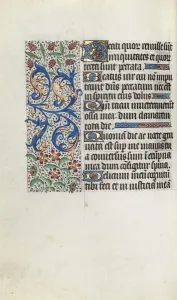 Beati quor remisse sunt
iniquitates et quorum
tecta sunt peccata.
Beatus vir cui non impu
tavit dñs peccatum nec est
in spiritu eius dolus
Qm tacui inveteraverunt
ossa mea dum clamarem
tota die
Quoniā die ac nocte
gravata est super me
manus tua
conversus sum in erupna
mea dum configitur spina
Delictum meū cognitū
tibi feci et in iusticiā meā